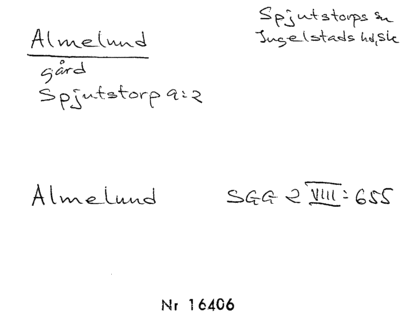 Almelund
gård
Spjutstorp 9:2
Spjutstorps sn
Ingelstads hd, Sk
Almelund SGG 2 VIII: 655
Nr 16406